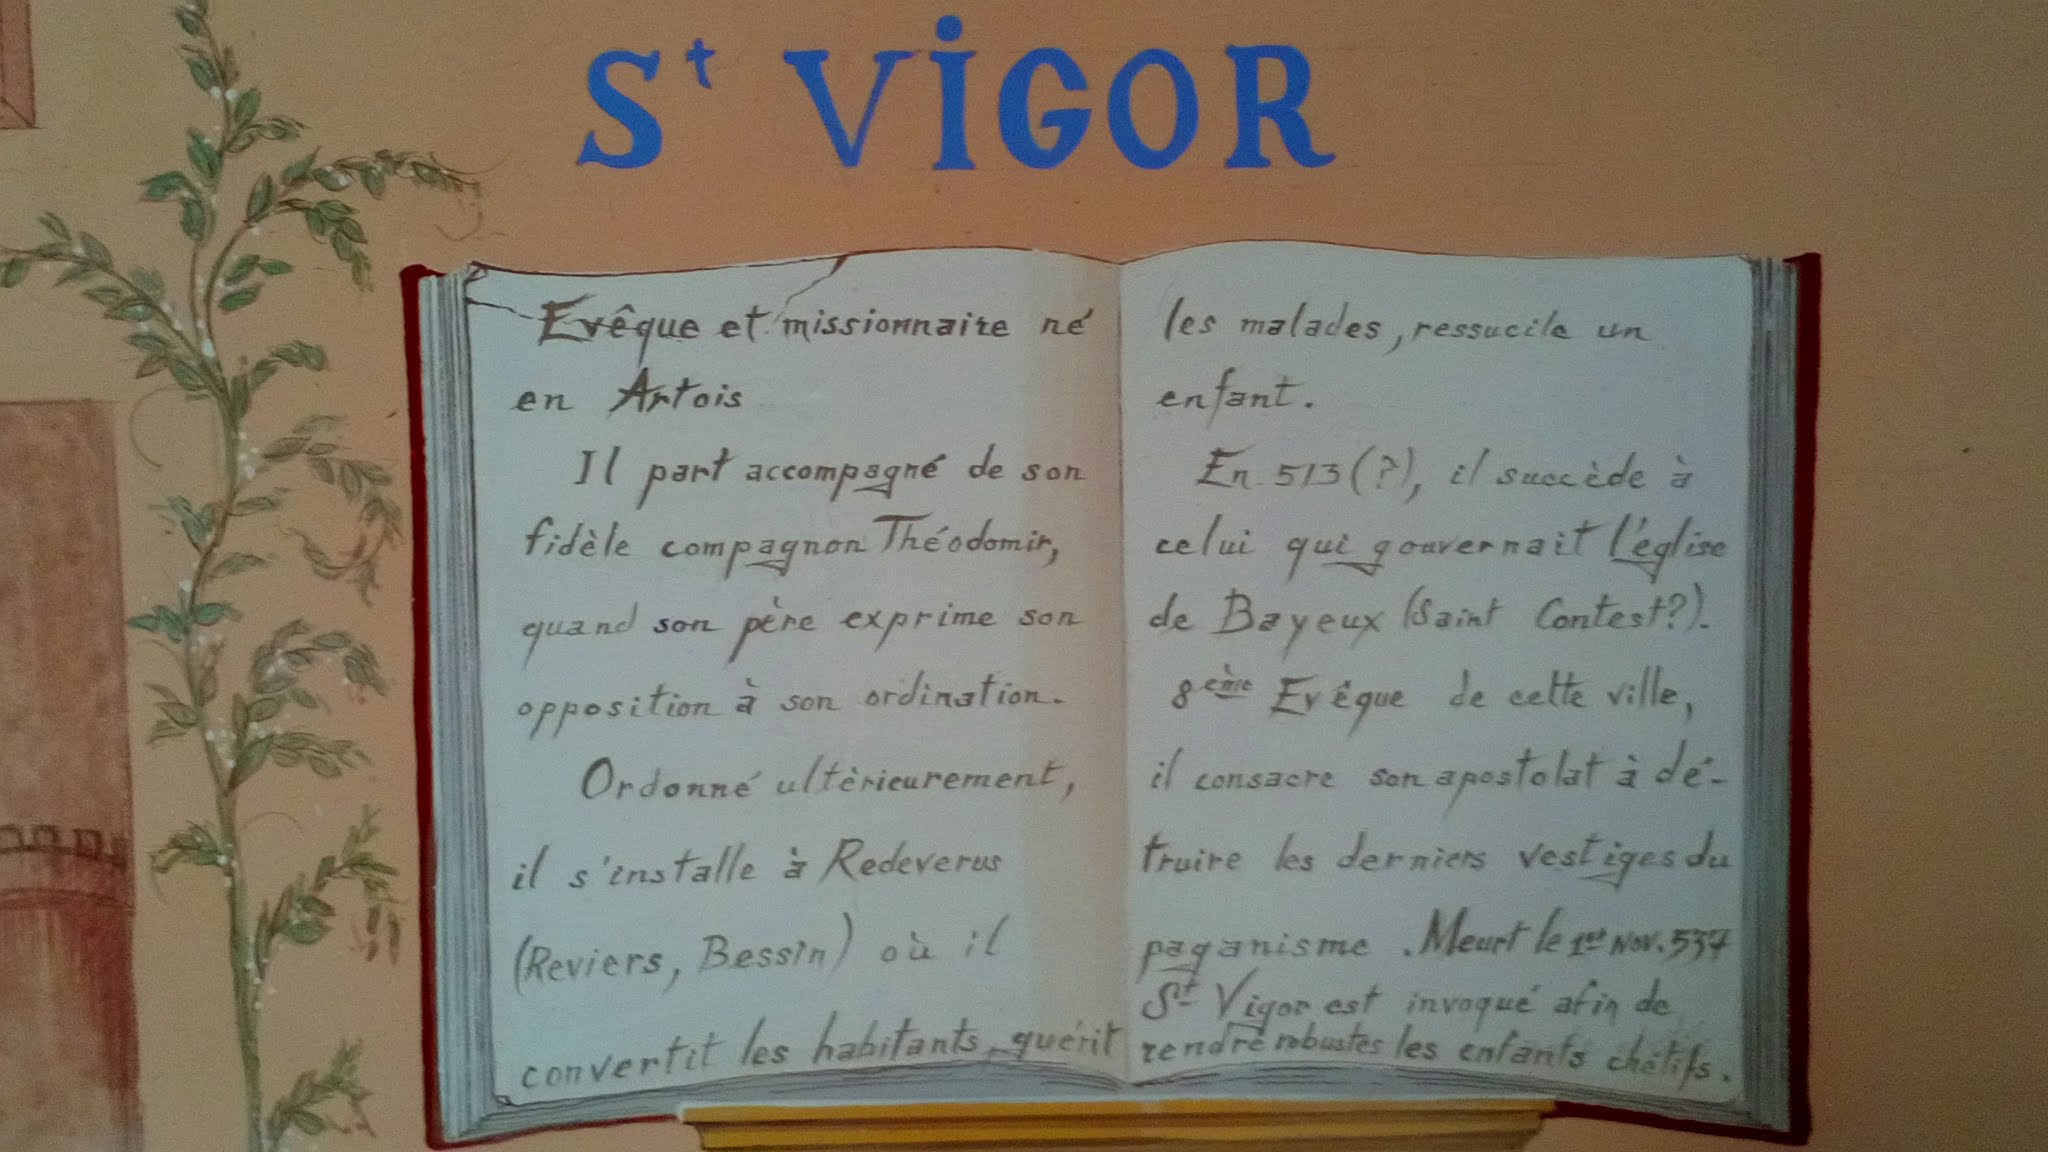 St ViGOR
Evêque et missionnaire né
en Artois
Il part accompagné de son
fidèle compagnon Théodomir,
quand son père exprime son
opposition à son ordination.
Ordonné ultèrieurement,
il s'installe à Redeverus
(Reviers, Bessin) où il
convertit les habitants, guérit
les malades, ressucite un
enfant.
En 513 (?), il succède à
celui qui gouvernait l'église
de Bayeux (Saint Contest?).
8ème Evêque de cette ville,
il consacre son apostolat à dé-
truire les derniers vestiges du
paganisme. Meurt le 1er NOV. 537
St Vigor est invoqué afin de
rendre robustes les enfants chétifs.